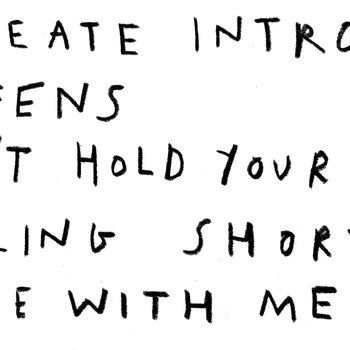 EATE INTRO
EENS
'T HOLD YOUR
LING SHOR
E WITH ME